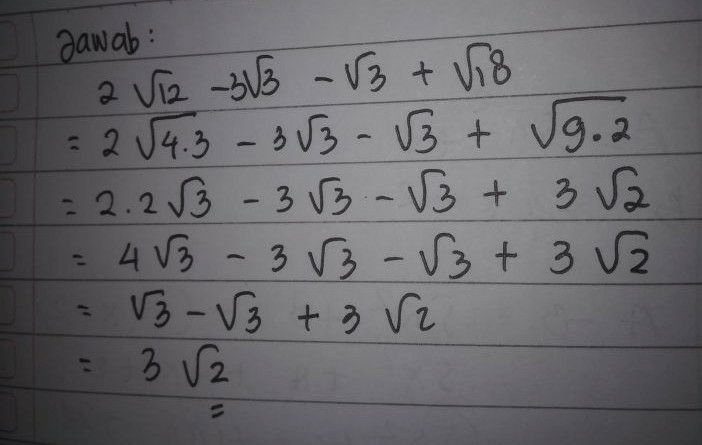 Jawab:
2 √12 - 3√3 - √3 + √18
= 2 √4.3 - 3 √3 - √3 + √9.2
= 2.2 √3 - 3 √3 - √3 + 3 √2
= 4 √3 - 3 √3 - √3 + 3 √2
= √3 - √3 + 3 √2
= 3 √2